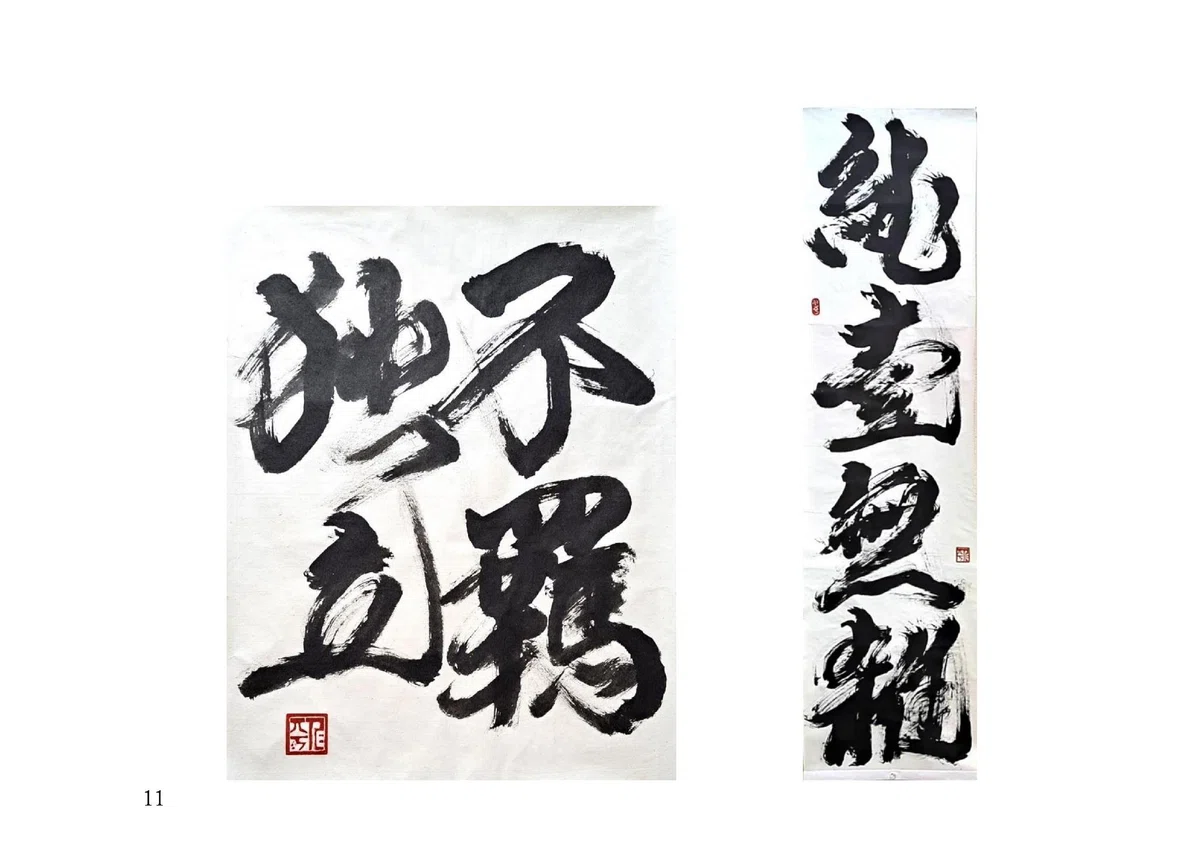 不羈
独立
純壹無雑
11